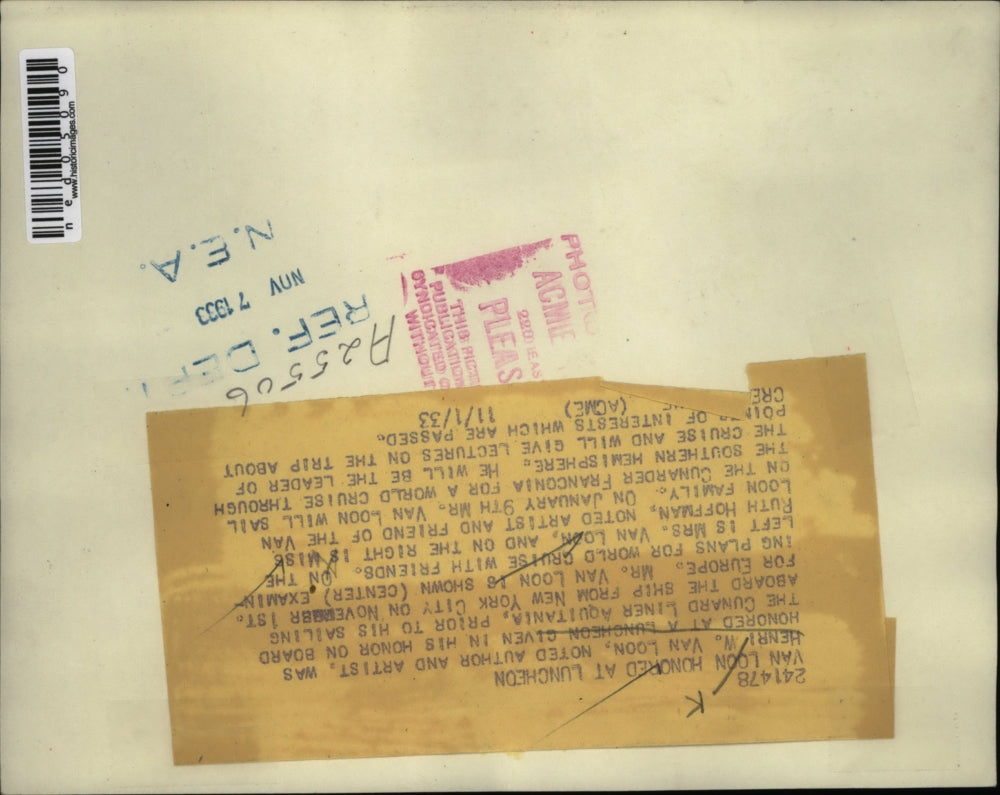 241478
VAN LOON HONORED AT LUNCHEON
HENRI W. VAN LOON, NOTED AUTHOR AND ARTIST, WAS
HONORED AT A LUNCHEON GIVEN IN HIS HONOR ON BOARD
THE CUNARD LINER AQUITANIA, PRIOR TO HIS SAILING
ABOARD THE SHIP FROM NEW YORK CITY ON NOVEMBER 1ST.
FOR EUROPE. MR. VAN LOON IS SHOWN (CENTER) EXAMIN-
ING PLANS FOR WORLD CRUISE WITH FRIENDS. ON THE
LEFT IS MRS. VAN LOON, AND ON THE RIGHT IS MISS
RUTH HOFFMAN, NOTED ARTIST AND FRIEND OF THE VAN
LOON FAMILY. ON JANUARY 9TH MR. VAN LOON WILL SAIL
ON THE CUNARDER FRANCONIA FOR A WORLD CRUISE THROUGH
THE SOUTHERN HEMISPHERE. HE WILL BE THE LEADER OF
THE CRUISE AND WILL GIVE LECTURES ON THE TRIP ABOUT
POINTS OF INTERESTS WHICH ARE PASSED.
CRE (ACME) 11/1/33
K
A25506
REF. DEPT.
NOV 7 1933
N.E.A.
PHOTO
ACME
220 EAS
PLEAS
THIS PICTU
PUBLICATION
SYNDICATED O
WITHOUT
ned05090
www.historicimages.com